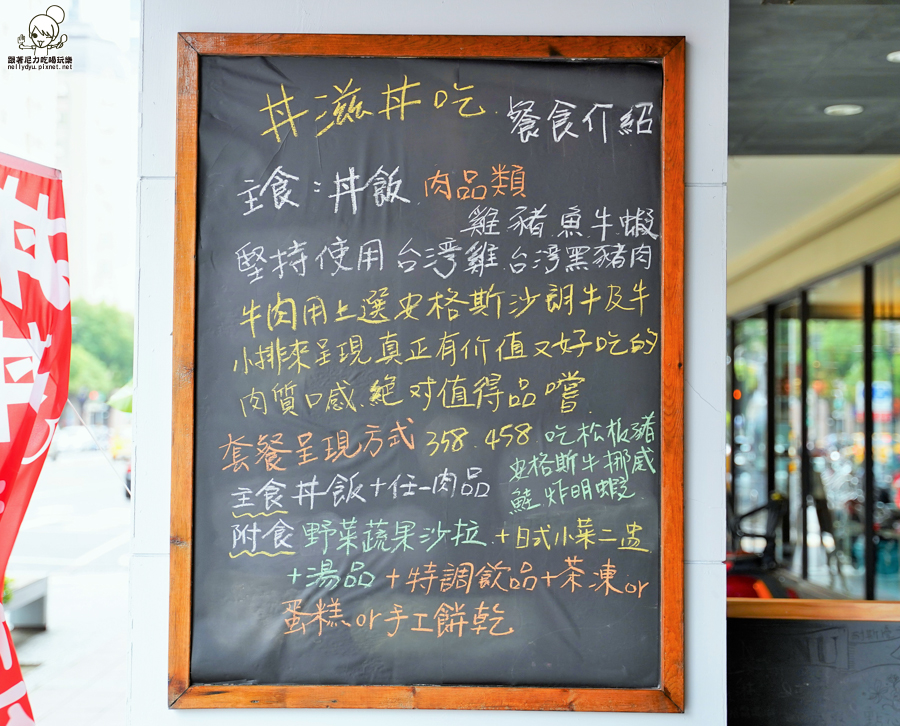 跟著尼力吃喝玩樂
nellydyu.pixnet.net
丼滋丼吃 餐食介紹
主食：丼飯 肉品類
雞豬魚牛蝦
堅持使用台灣雞台灣黑豬肉
牛肉用上選安格斯沙朗牛及牛
小排來呈現真正有价值又好吃的
肉質口感絕对值得品嚐
套餐呈現方式 358.458.吃松板豬
安格斯牛挪威
鮭炸明蝦
主食丼飯+任一肉品
附食 野菜蔬果沙拉+日式小菜二盅
+湯品+特調飲品+茶凍or
蛋糕or手工餅乾